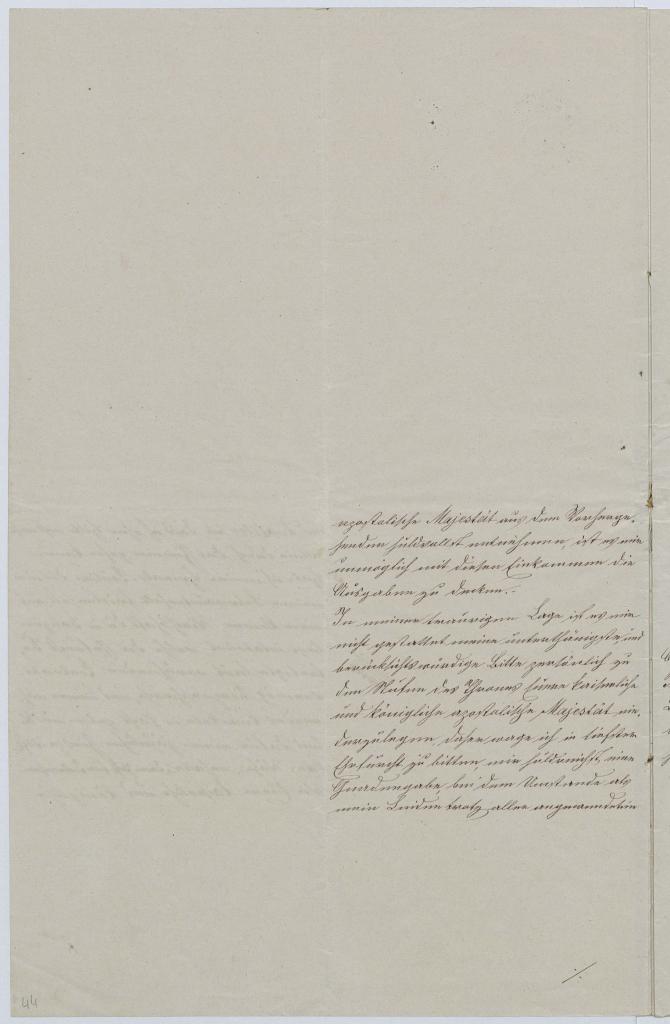 apostolische Majestät aus dem Vorherge-
henden huldvollst entnehmen, ist es mir
unmöglich mit diesen Einkommen die
Ausgaben zu decken.-
In meiner traurigen Lage ist es mir
nicht gestattet meine unterthänigste und
berücksichtswürdige Bitte persönlich zu
den Stufen des Thrones Euere kaiserliche
und königliche apostolische Majestät nie-
derzulegen, daher wage ich in tiefster
Ehrfurcht zu bitten mir huldreichst eine
Gnadengabe bei dem Umstande als
mein Leiden trotz aller angewandten
./.
44